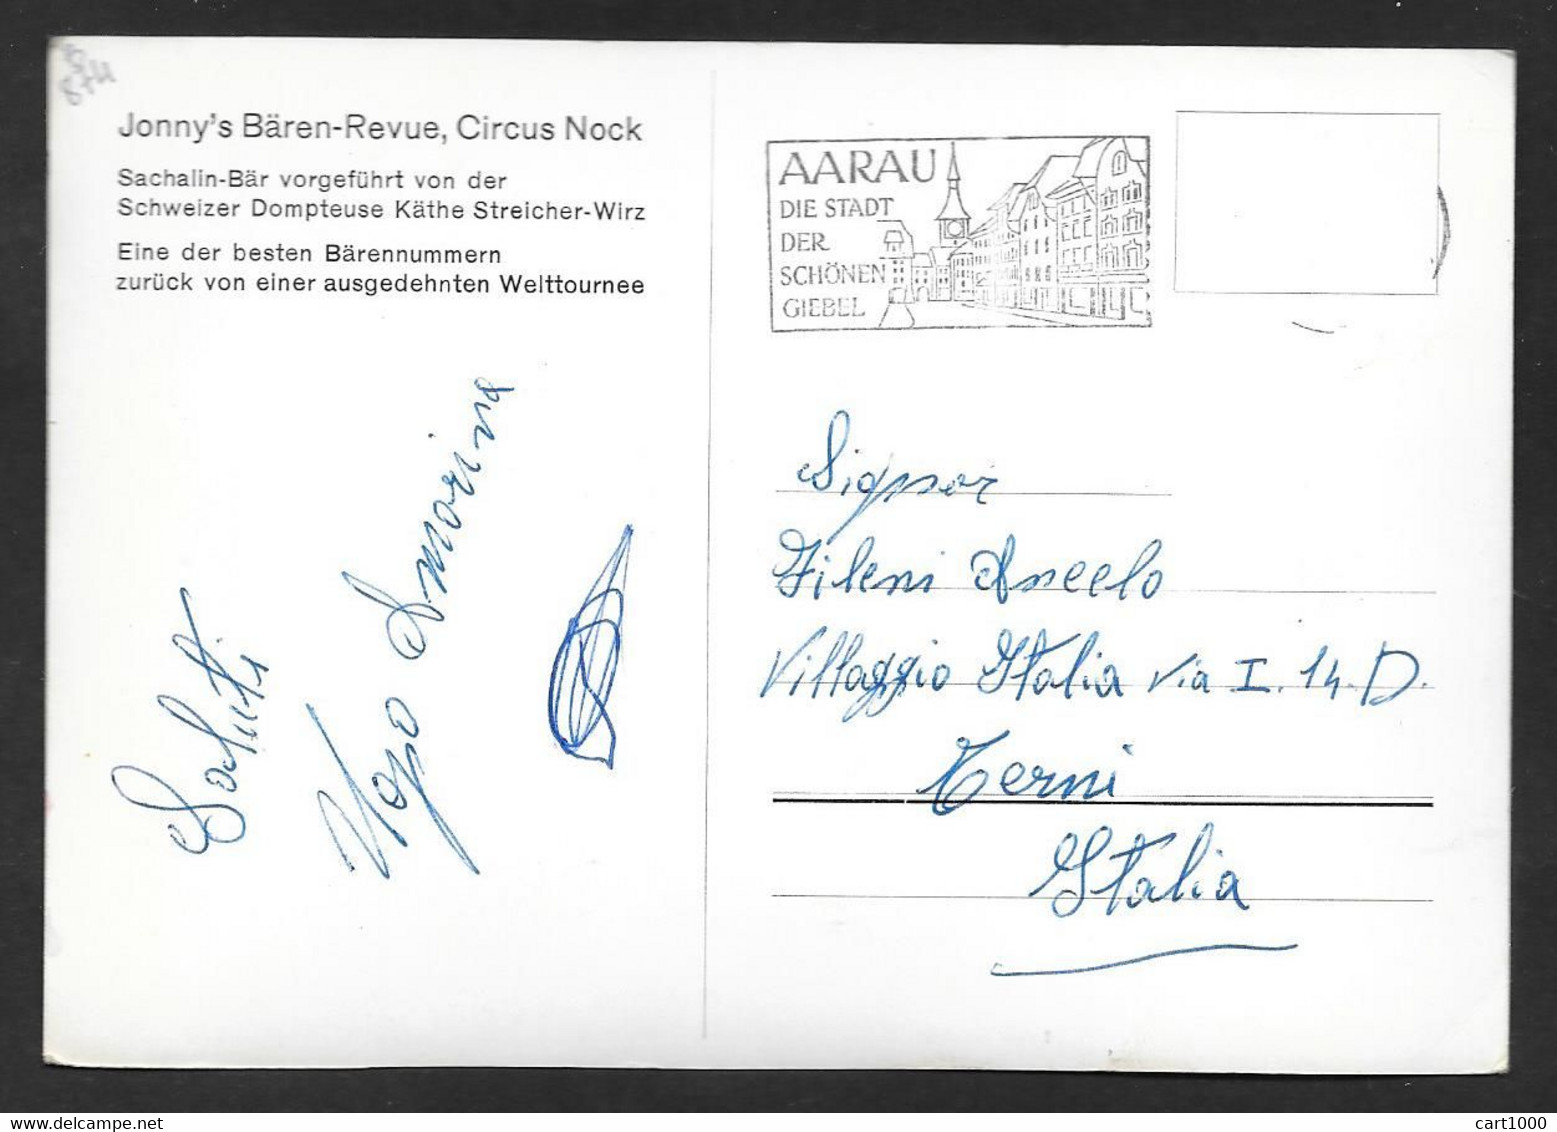 Jonny's Bären-Revue, Circus Nock
Sachalin-Bär vorgeführt von der
Schweizer Dompteuse Käthe Streicher-Wirz
Eine der besten Bärennummern
zurück von einer ausgedehnten Welttournee
Saluti
AARAU
DIE STADT
DER
SCHÖNEN
GIEBEL
Signor
Fileni
Villaggio Italia via I. 14. D.
Terni
Italia
cart1000